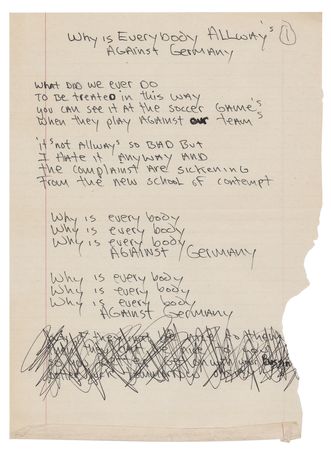 Why is Everybody Allway's ①
Against Germany
What did we ever do
To be treated in this way
you can see it at the soccer game's
When they play against our team's
it's not allways so bad but
I hate it anyway and
the complaint are sickening
From the new school of contempt
Why is every body
Why is every body
Why is every body
AGAINST Germany
Why is every body
Why is every body
Why is every body
AGAINST Germany